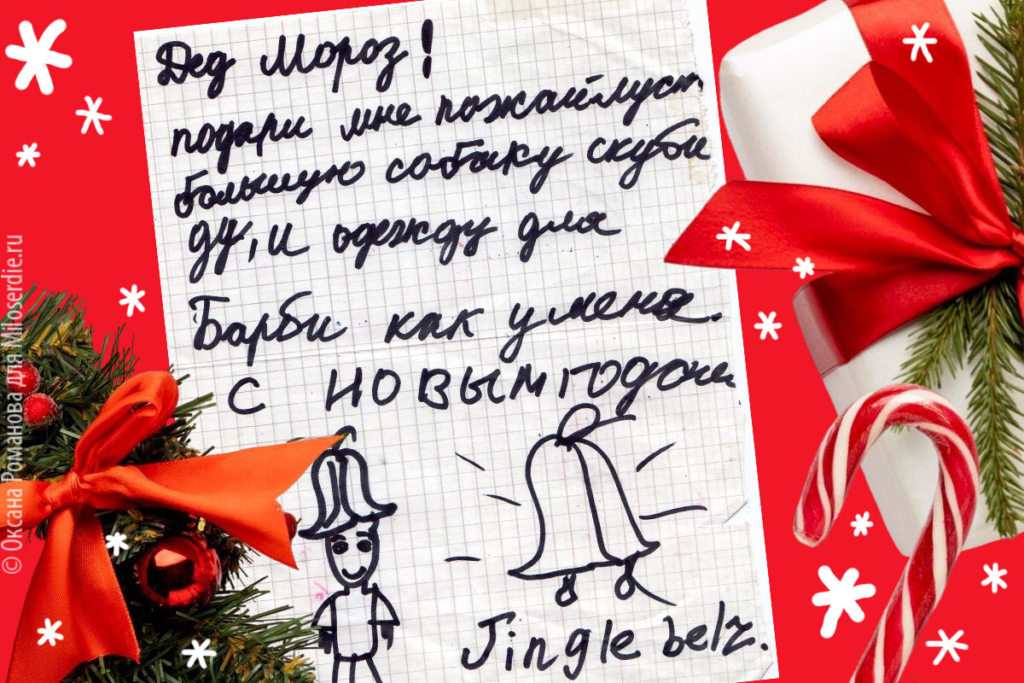 Дед Мороз!
подари мне пожайлуст
большую собаку скуби
ду, и одежду для
Барби как у меня.
С НОВЫМ годом
Jingle belz.
© Оксана Романова для Miloserdie.ru